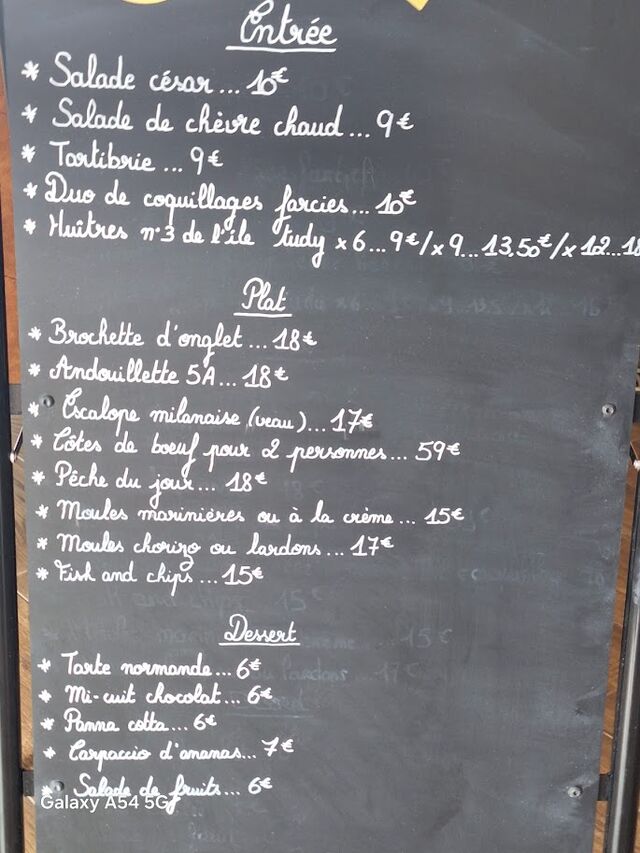 Entrée
* Salade césar... 10€
* Salade de chèvre chaud... 9€
* Tartibrie... 9€
* Duo de coquillages farcies... 10€
* Huîtres n°3 de l'île tudy x6...9€/x9...13,50€/x12...18
Plat
* Brochette d'onglet... 18€
* Andouillette 5A... 18€
* Escalope milanaise (veau)... 17€
* Côtes de boeuf pour 2 personnes... 59€
* Pêche du jour... 18€
* Moules marinières ou à la crème... 15€
* Moules chorizo ou lardons... 17€
* Fish and chips... 15€
Dessert
* Tarte normande... 6€
* Mi-cuit chocolat... 6€
* Panna cotta... 6€
* Carpaccio d'ananas... 7€
* Salade de fruits... 6€
Galaxy A54 5G